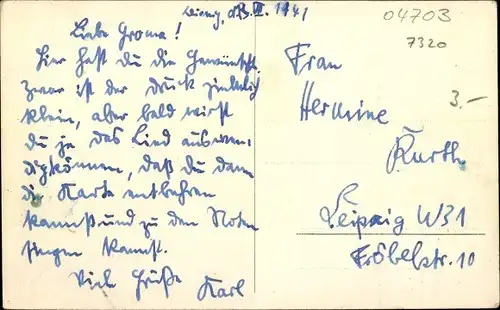 1941
Liebe Groma!
Hier hast du die Gewünscht.
Zwar ist der Druck ziemlich
klein, aber bald wirst
du ja das Lied auswen-
digkönnen, daß du dann
die Karte entbehren
kannst und zu den Noten
singen kannst.
Viele Grüße Karl
04703
7320
3.-
Frau
Hermine
Kurth
Leipzig W31
Fröbelstr. 10